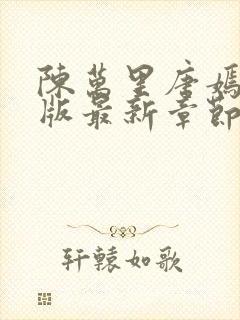 陳萬里唐嫣
版最新章節
轩轅如歌